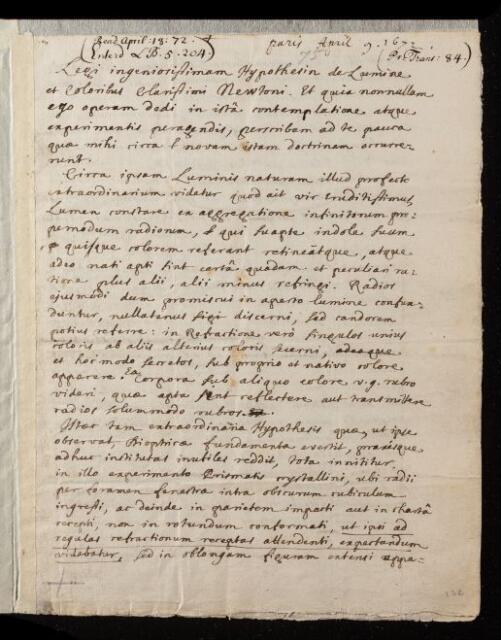 (Read April: 18: 72.
Enterd LB. 5. 204)
paris April 9. 1672
(Ph. Trans: 84.)
Legi ingeniosissimam Hypothesin de Lumine
et Coloribus Clarissimi Newtoni. Et quia nonnullam
ego operam dedi in istâ contemplatione atque
experimentis peragendis, perscribam ad te pauca
quæ mihi circa novam istam doctrinam occurre-
runt.
Circa ipsam Luminis naturam illud profecto
extraordinarium videtur quod ait vir Eruditissimus
Lumen constare ex aggregatione infinitorum pro-
pemodum radiorum, qui suapte indole suum
quisque colorem referant retineātque, atque
adeo nati apti sint certâ quâdam et peculiari ra-
tione plus alii, alii minus refringi. Radios
ejusmodi dum promiscui in aperto lumine confun-
duntur, nullatenus discerni, sed candorem
potius referre: in Refractione verò singulos unius
coloris ab aliis alterius coloris secerni,
et hoc modo secretos, sub proprio et nativo colore
apparere. Ea Corpora sub aliquo colore v.g. rubro
videri, quæ apta sint reflectere aut transmittere
radios solummodo rubros &c.
Istec tam extraordinaria Hypothesis quæ, ut ipse
observat, Dioptricæ fundamenta evertit, praxesque
adhuc institutas inutiles reddit, tota innititur
in illo experimento Prismatis crystallini, ubi radii
per foramen fenestræ intra obscurum cubiculum
ingressi, ac deinde in parietem impacti aut in chartâ
recepti, non in rotundum conformati, ut ipsi ad
regulas refractionum receptas attendenti, expectandum
videbatur, sed in oblongam figuram extensi appa-